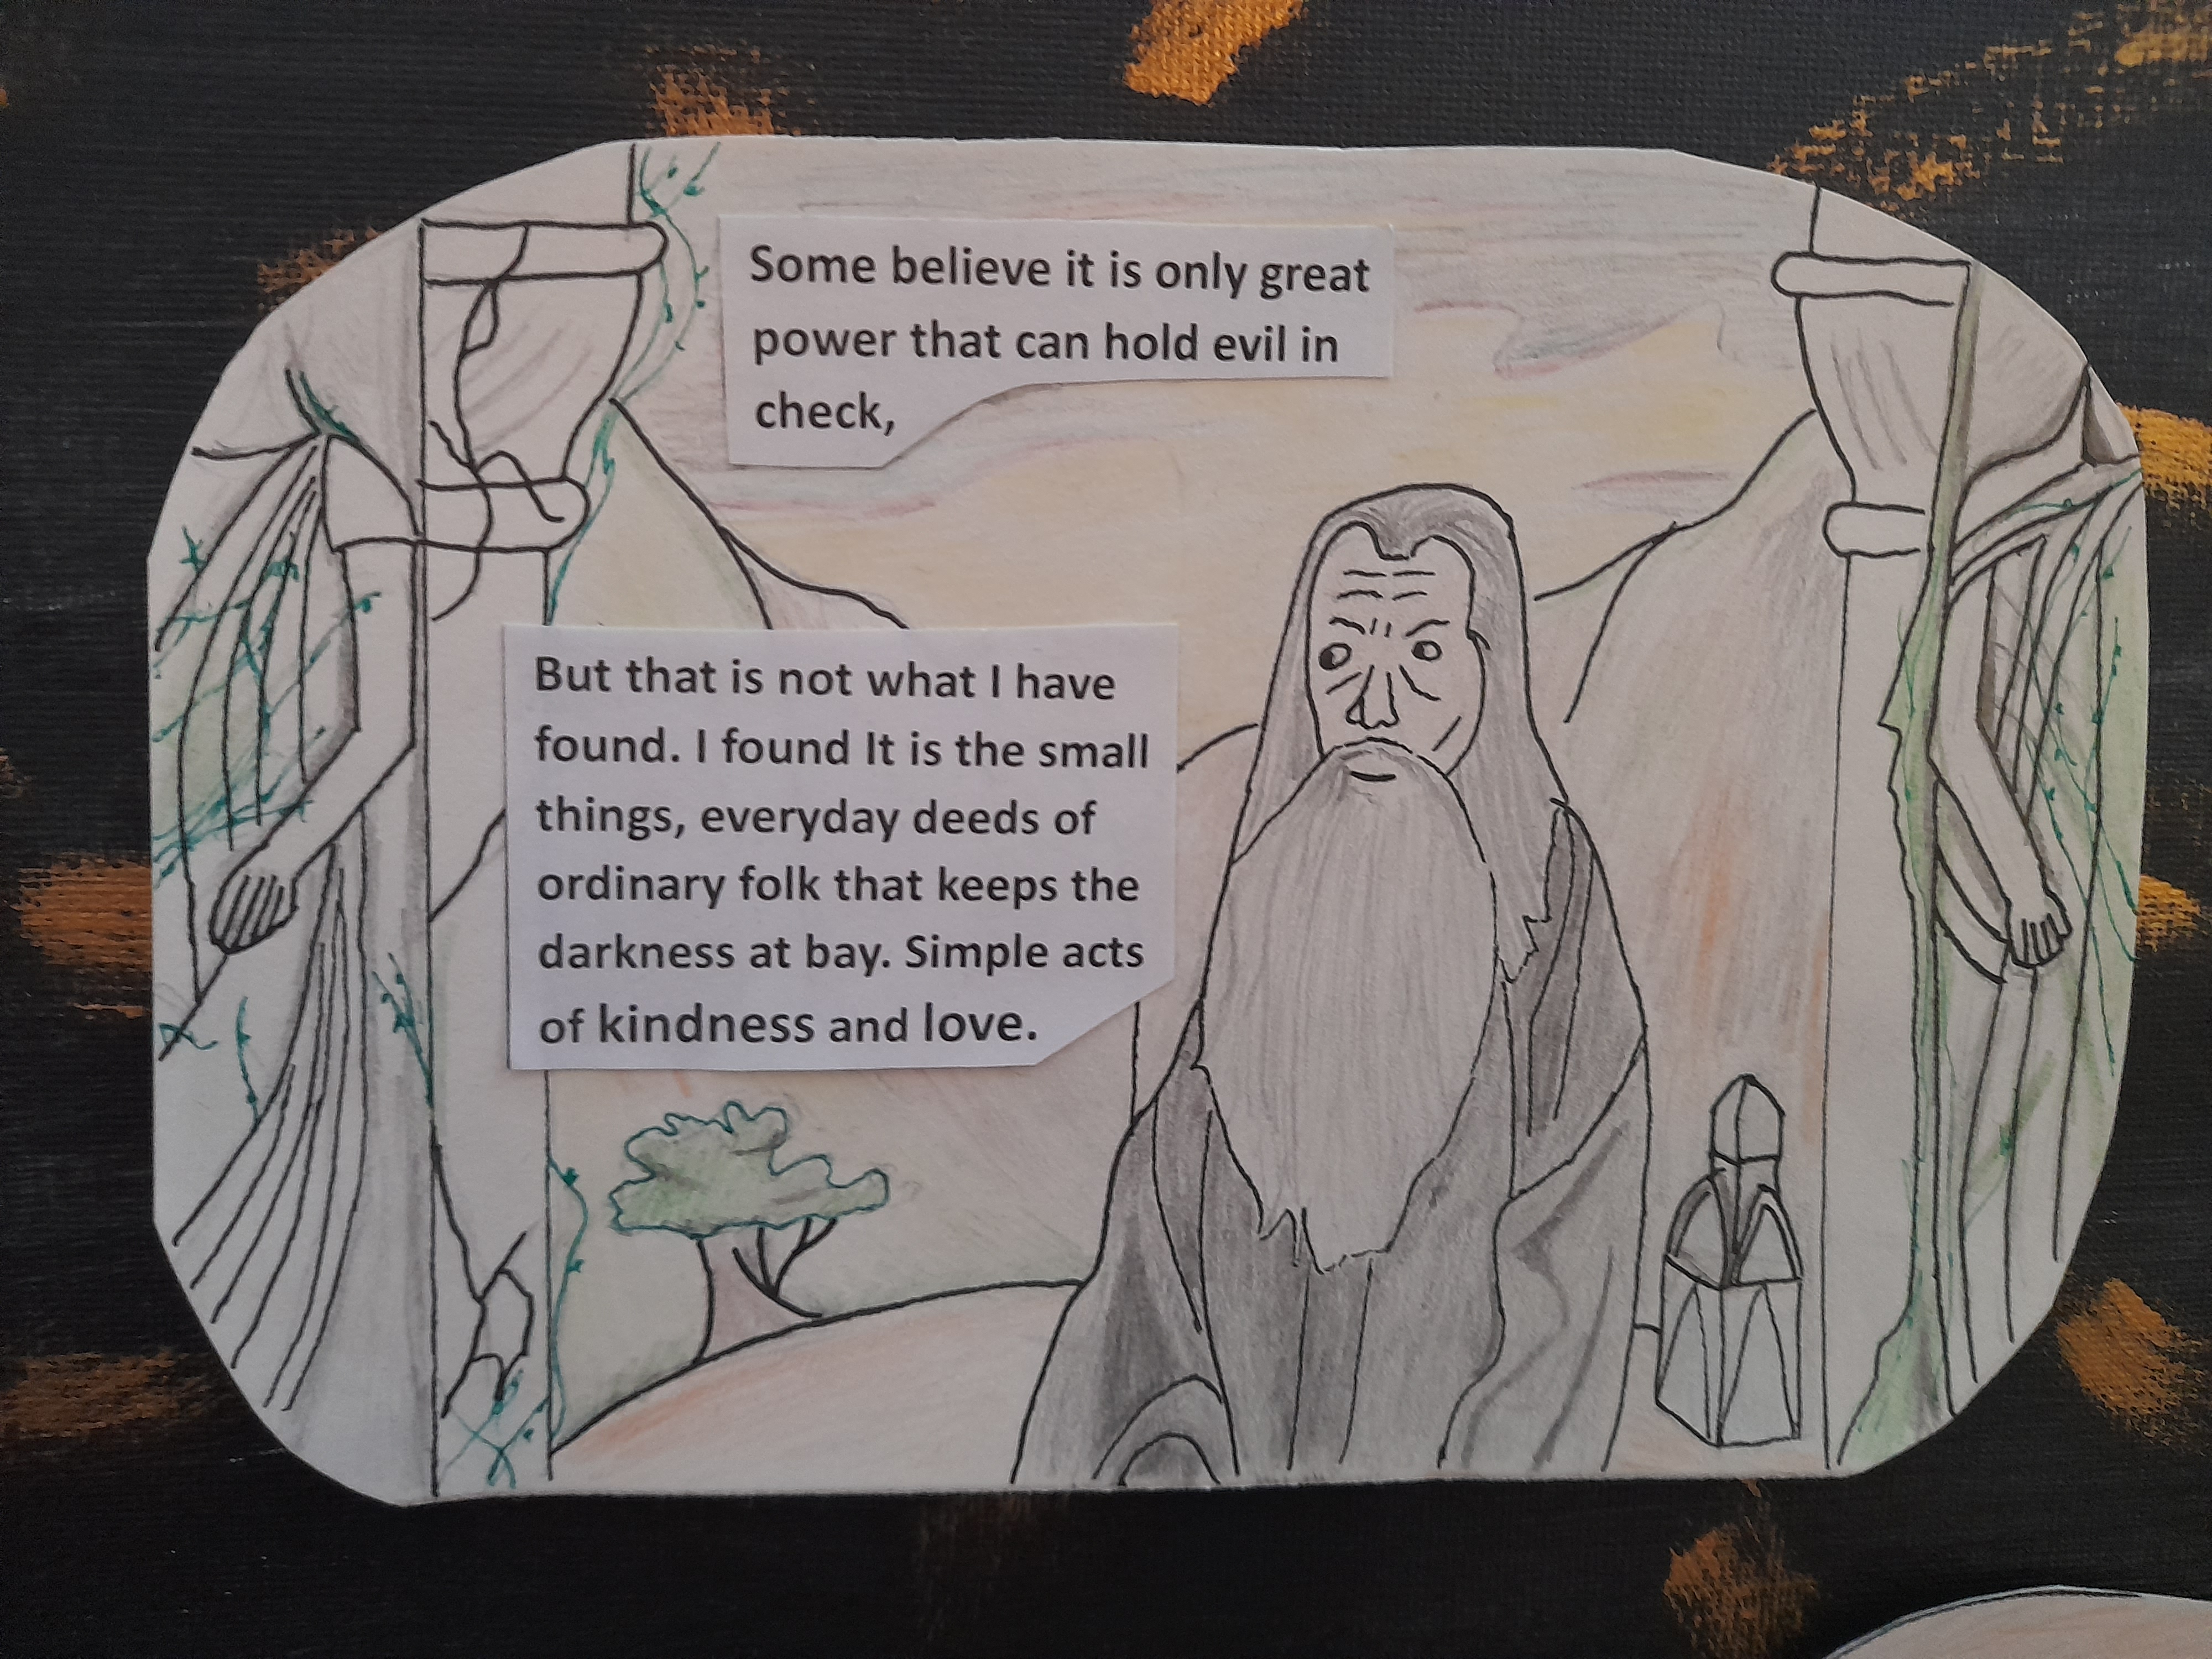 Some believe it is only great
power that can hold evil in
check,
But that is not what I have
found. I found It is the small
things, everyday deeds of
ordinary folk that keeps the
darkness at bay. Simple acts
of kindness and love.